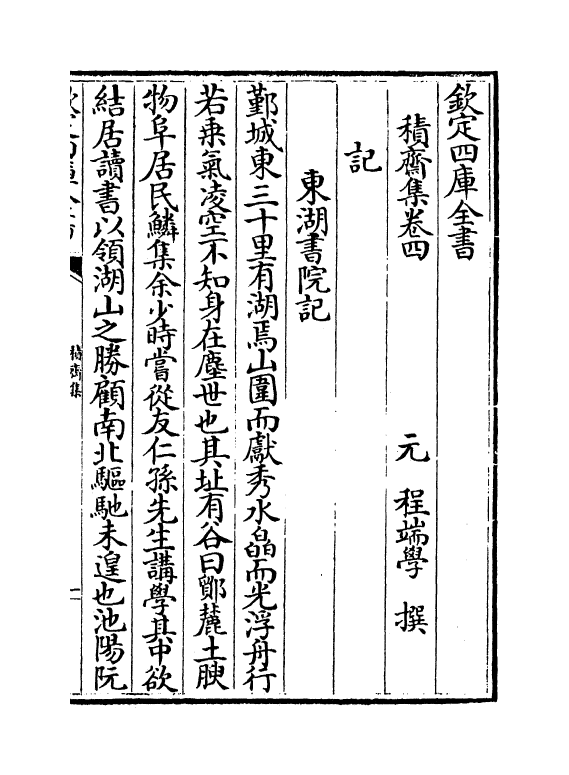 欽定四庫全書
積齋集卷四
元 程端學 撰
記
東湖書院記
鄞城東三十里有湖焉山圍而獻秀水皛而光浮舟行
若乗氣凌空不知身在塵世也其址有谷曰鄮麓土腴
物阜居民鱗集余少時嘗從友仁孫先生講學其中欲
結居讀書以領湖山之勝顧南北驅馳未遑也池陽阮
積齋集
一